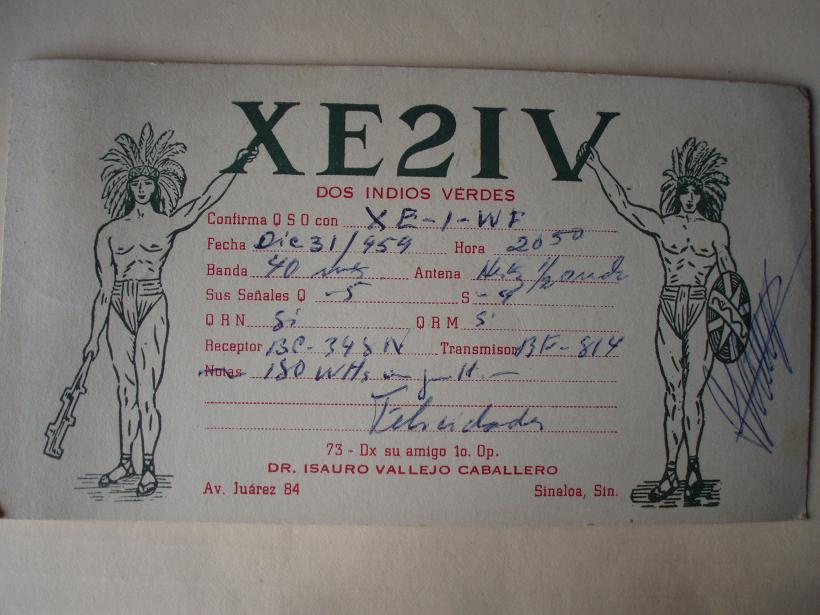 XE2IV
DOS INDIOS VERDES
Confirma Q S O con XE-1-WF
Fecha Dic 31/959 Hora 2050
Banda 40 Antena Hertz 1/2 onda
Sus Señales Q -5 S-9
Q R N Si Q R M Si
Receptor BC-348N Transmisor
Notas 180
Felicidades
73 - Dx su amigo 1o. Op.
DR. ISAURO VALLEJO CABALLERO
Av. Juárez 84 Sinaloa, Sin.